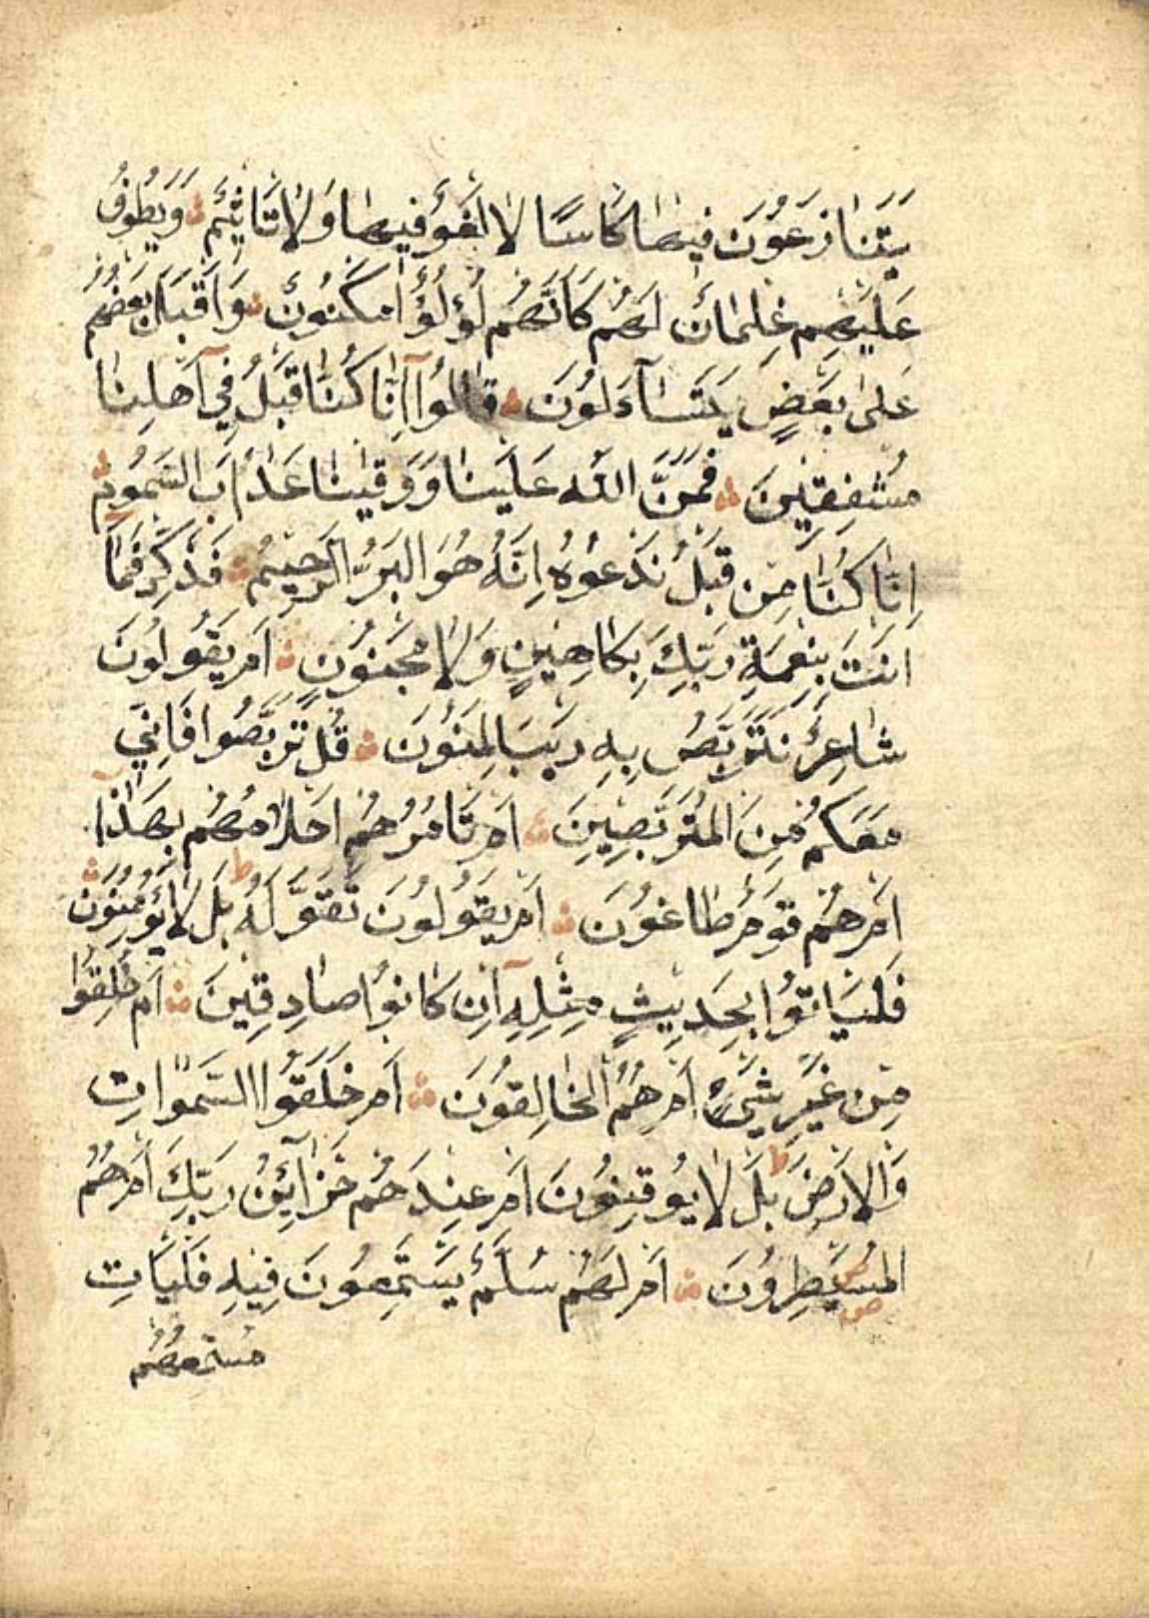 يَتَنَازَعُونَ فِيهَا كَاسًا لَا لَغْوٌ فِيهَا وَلَا تَاثِيمٌ وَيَطُوفُ
عَلَيْهِمْ غِلْمَانٌ لَهُمْ كَاَنَّهُمْ لُؤْلُؤٌ مَكْنُونٌ وَاَقْبَلَ بَعْضُهُمْ
عَلٰى بَعْضٍ يَتَسَآءَلُونَ قَالُوٓا اِنَّا كُنَّا قَبْلُ فِىٓ اَهْلِنَا
مُشْفِقِينَ فَمَنَّ اللّٰهُ عَلَيْنَا وَوَقٰينَا عَذَابَ السَّمُومِ
اِنَّا كُنَّا مِنْ قَبْلُ نَدْعُوهُ اِنَّهُ هُوَ الْبَرُّ الرَّحِيمُ فَذَكِّرْ فَمَا
اَنْتَ بِنِعْمَةِ رَبِّكَ بِكَاهِنٍ وَلَا مَجْنُونٍ اَمْ يَقُولُونَ
شَاعِرٌ نَتَرَبَّصُ بِهِ رَيْبَ الْمَنُونِ قُلْ تَرَبَّصُوا فَاِنِّي
مَعَكُمْ مِنَ الْمُتَرَبِّصِينَ اَمْ تَامُرُهُمْ اَحْلَامُهُمْ بِهٰذَٓا
اَمْ هُمْ قَوْمٌ طَاغُونَ اَمْ يَقُولُونَ تَقَوَّلَهُ ط بَلْ لَا يُؤْمِنُونَ
فَلْيَاتُوا بِحَدِيثٍ مِثْلِهِ اِنْ كَانُوا صَادِقِينَ اَمْ خُلِقُوا
مِنْ غَيْرِ شَيْءٍ اَمْ هُمُ الْخَالِقُونَ اَمْ خَلَقُوا السَّمٰوَاتِ
وَالْاَرْضَ ط بَلْ لَا يُوقِنُونَ اَمْ عِنْدَهُمْ خَزَآئِنُ رَبِّكَ اَمْ هُمُ
الْمُسَيْطِرُونَ اَمْ لَهُمْ سُلَّمٌ يَسْتَمِعُونَ فِيهِ فَلْيَاتِ
مُسْتَمِعُهُمْ